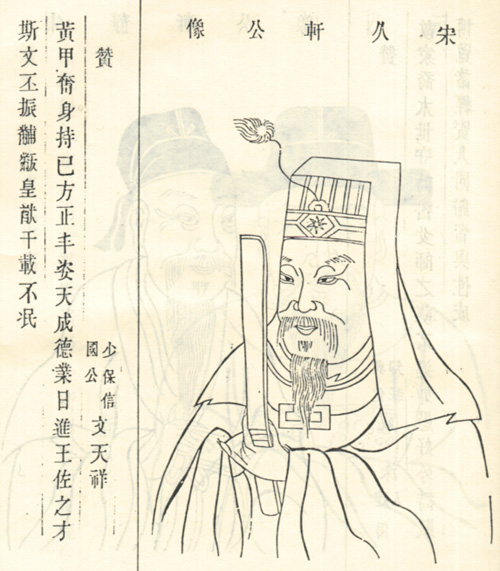 宋久軒公像
贊
少保信國公 文天祥
黃甲奮身持已方正丰姿天成德業日進王佐之才
斯文丕振黼黻皇猷千載不泯